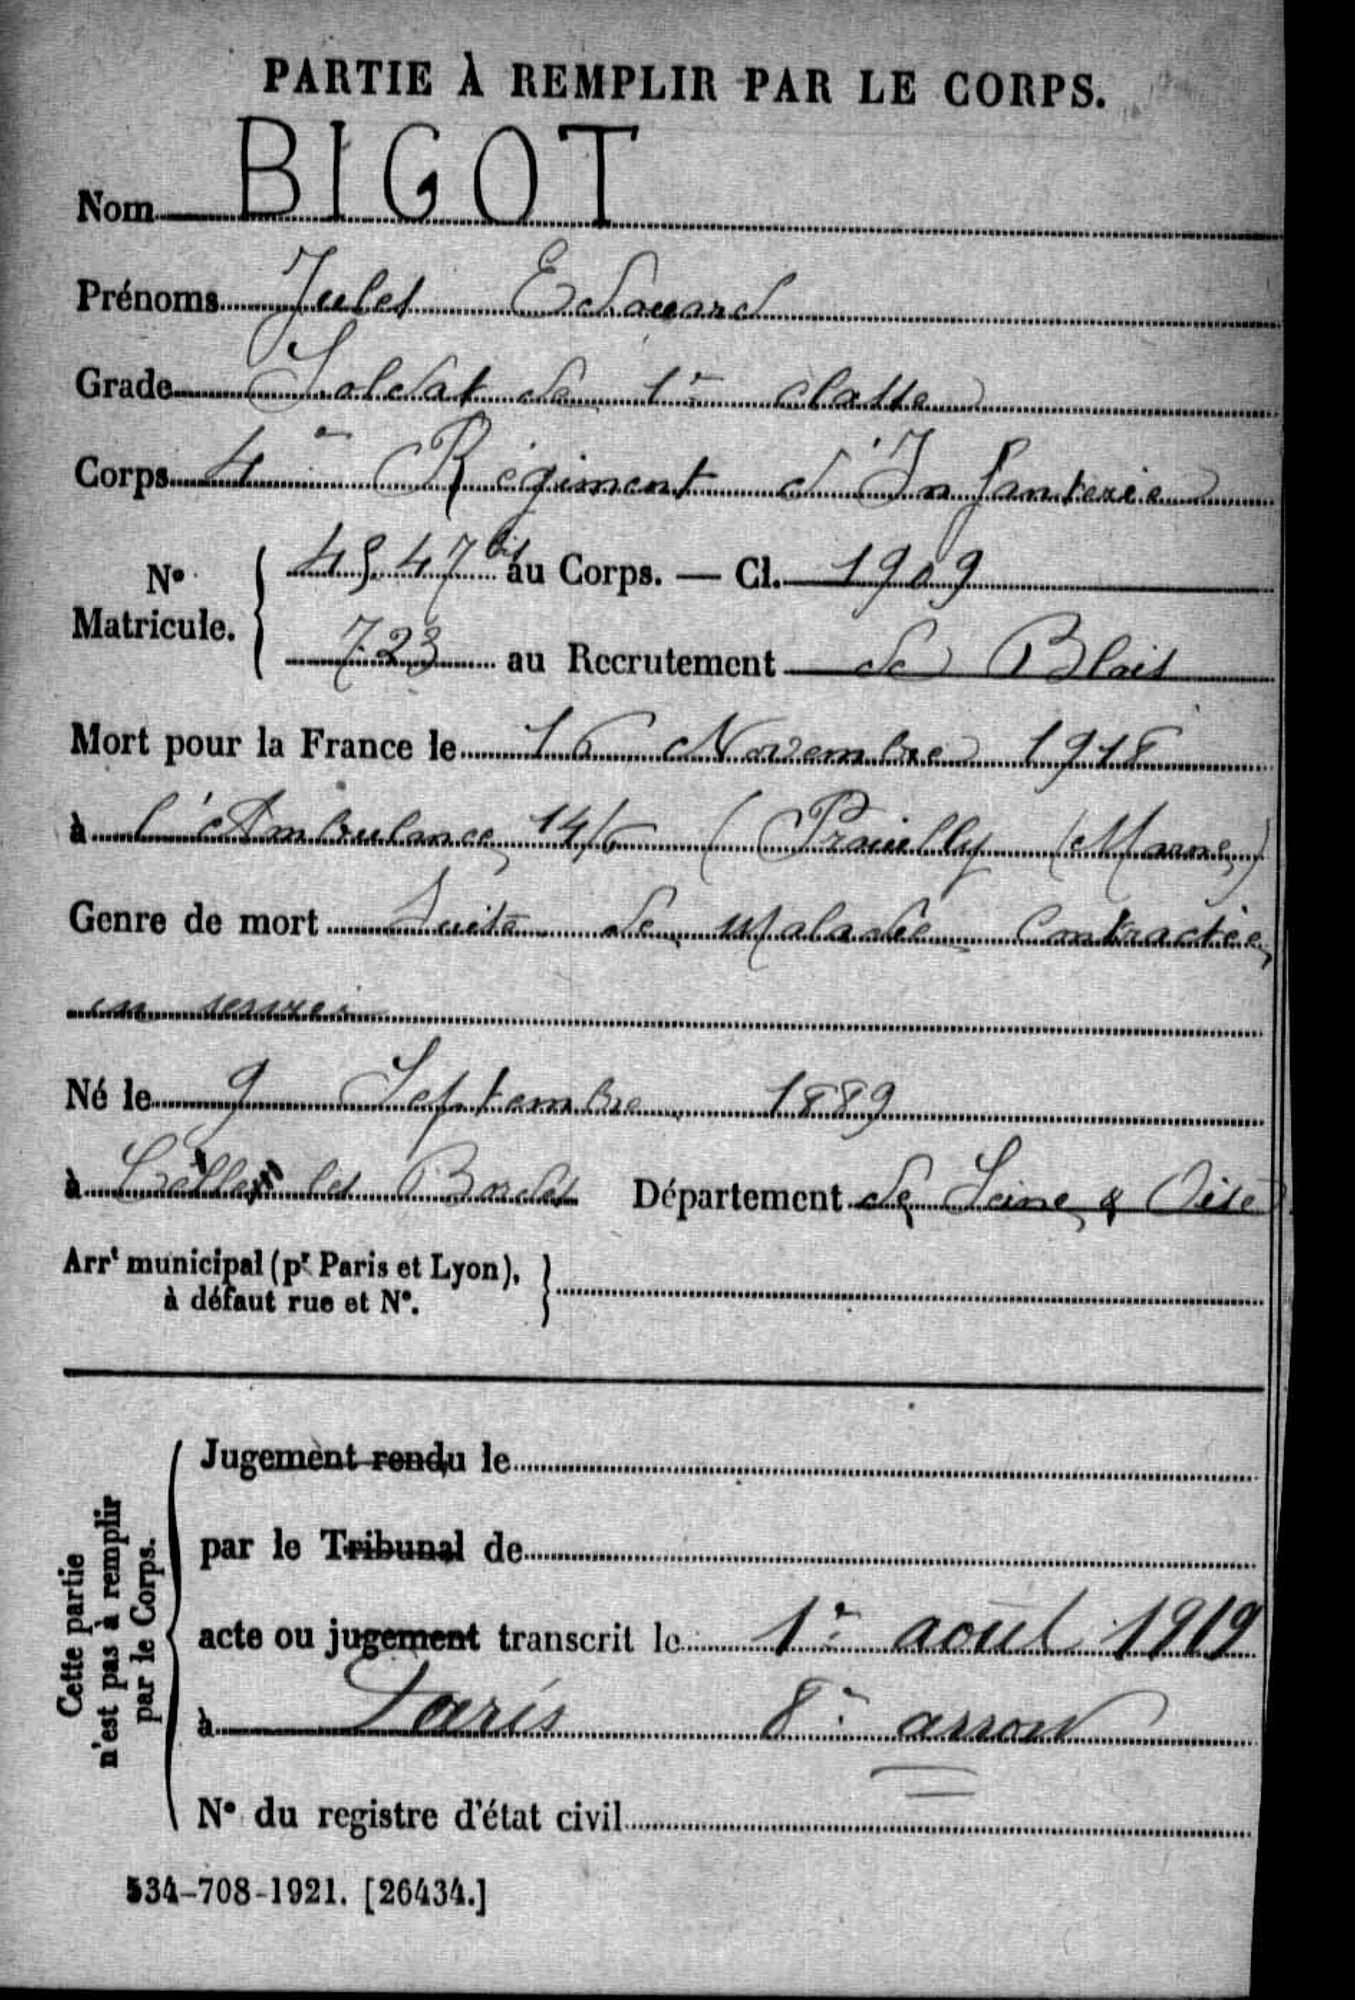 PARTIE À REMPLIR PAR LE CORPS.
Nom BIGOT
Prénoms Jules Edouard
Grade Soldat de 1re classe
Corps 4e Régiment d'Infanterie
No Matricule. { 4547 bis au Corps. — Cl. 1909
723 au Recrutement de Blois
Mort pour la France le 16 Novembre 1918
à l'Ambulance 14/6 (Prouilly (Marne)
Genre de mort Suite de Maladie Contractée
en service
Né le 9 Septembre 1889
à les Bordes Département de Seine & Oise
Arrt municipal (pr Paris et Lyon), à défaut rue et No. }
Cette partie n'est pas à remplir par le Corps.
Jugement rendu le
par le Tribunal de
acte ou jugement transcrit le 1er août 1919
à Paris 8e arron
No du registre d'état civil
534-708-1921. [26434.]